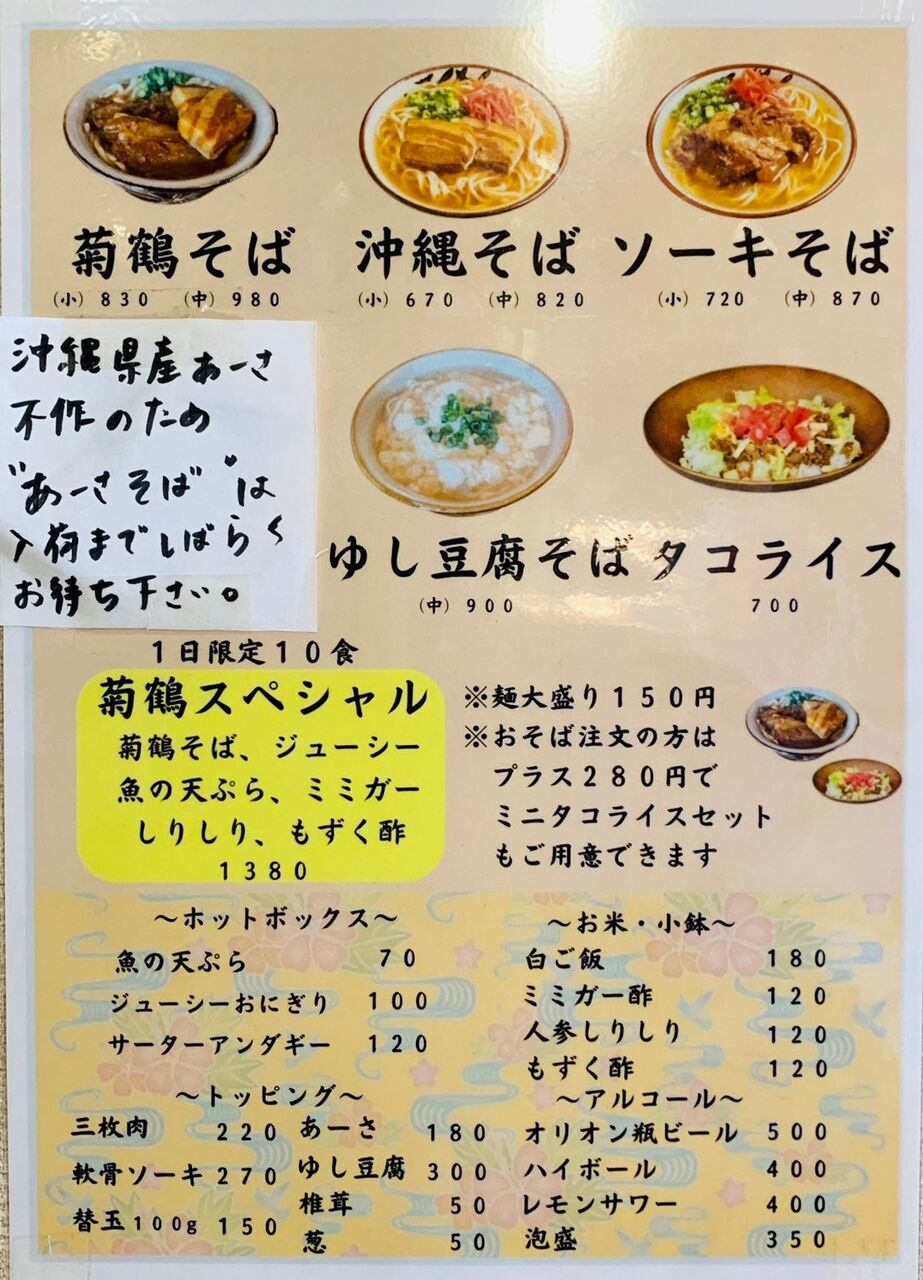 菊鶴そば
(小) 830 (中) 980
沖縄そば
(小) 670 (中) 820
ソーキそば
(小) 720 (中) 870
沖縄県産あーさ
不作のため
"あーさそば"は
入荷までしばらく
お待ち下さい。
ゆし豆腐そば
(中) 900
タコライス
700
1日限定10食
菊鶴スペシャル
菊鶴そば、ジューシー
魚の天ぷら、ミミガー
しりしり、もずく酢
1380
※麺大盛り150円
※おそば注文の方は
プラス280円で
ミニタコライスセット
もご用意できます
～ホットボックス～
魚の天ぷら 70
ジューシーおにぎり 100
サーターアンダギー 120
～お米・小鉢～
白ご飯 180
ミミガー酢 120
人参しりしり 120
もずく酢 120
～トッピング～
三枚肉 220
軟骨ソーキ 270
替玉100g 150
あーさ 180
ゆし豆腐 300
椎茸 50
葱 50
～アルコール～
オリオン瓶ビール 500
ハイボール 400
レモンサワー 400
泡盛 350